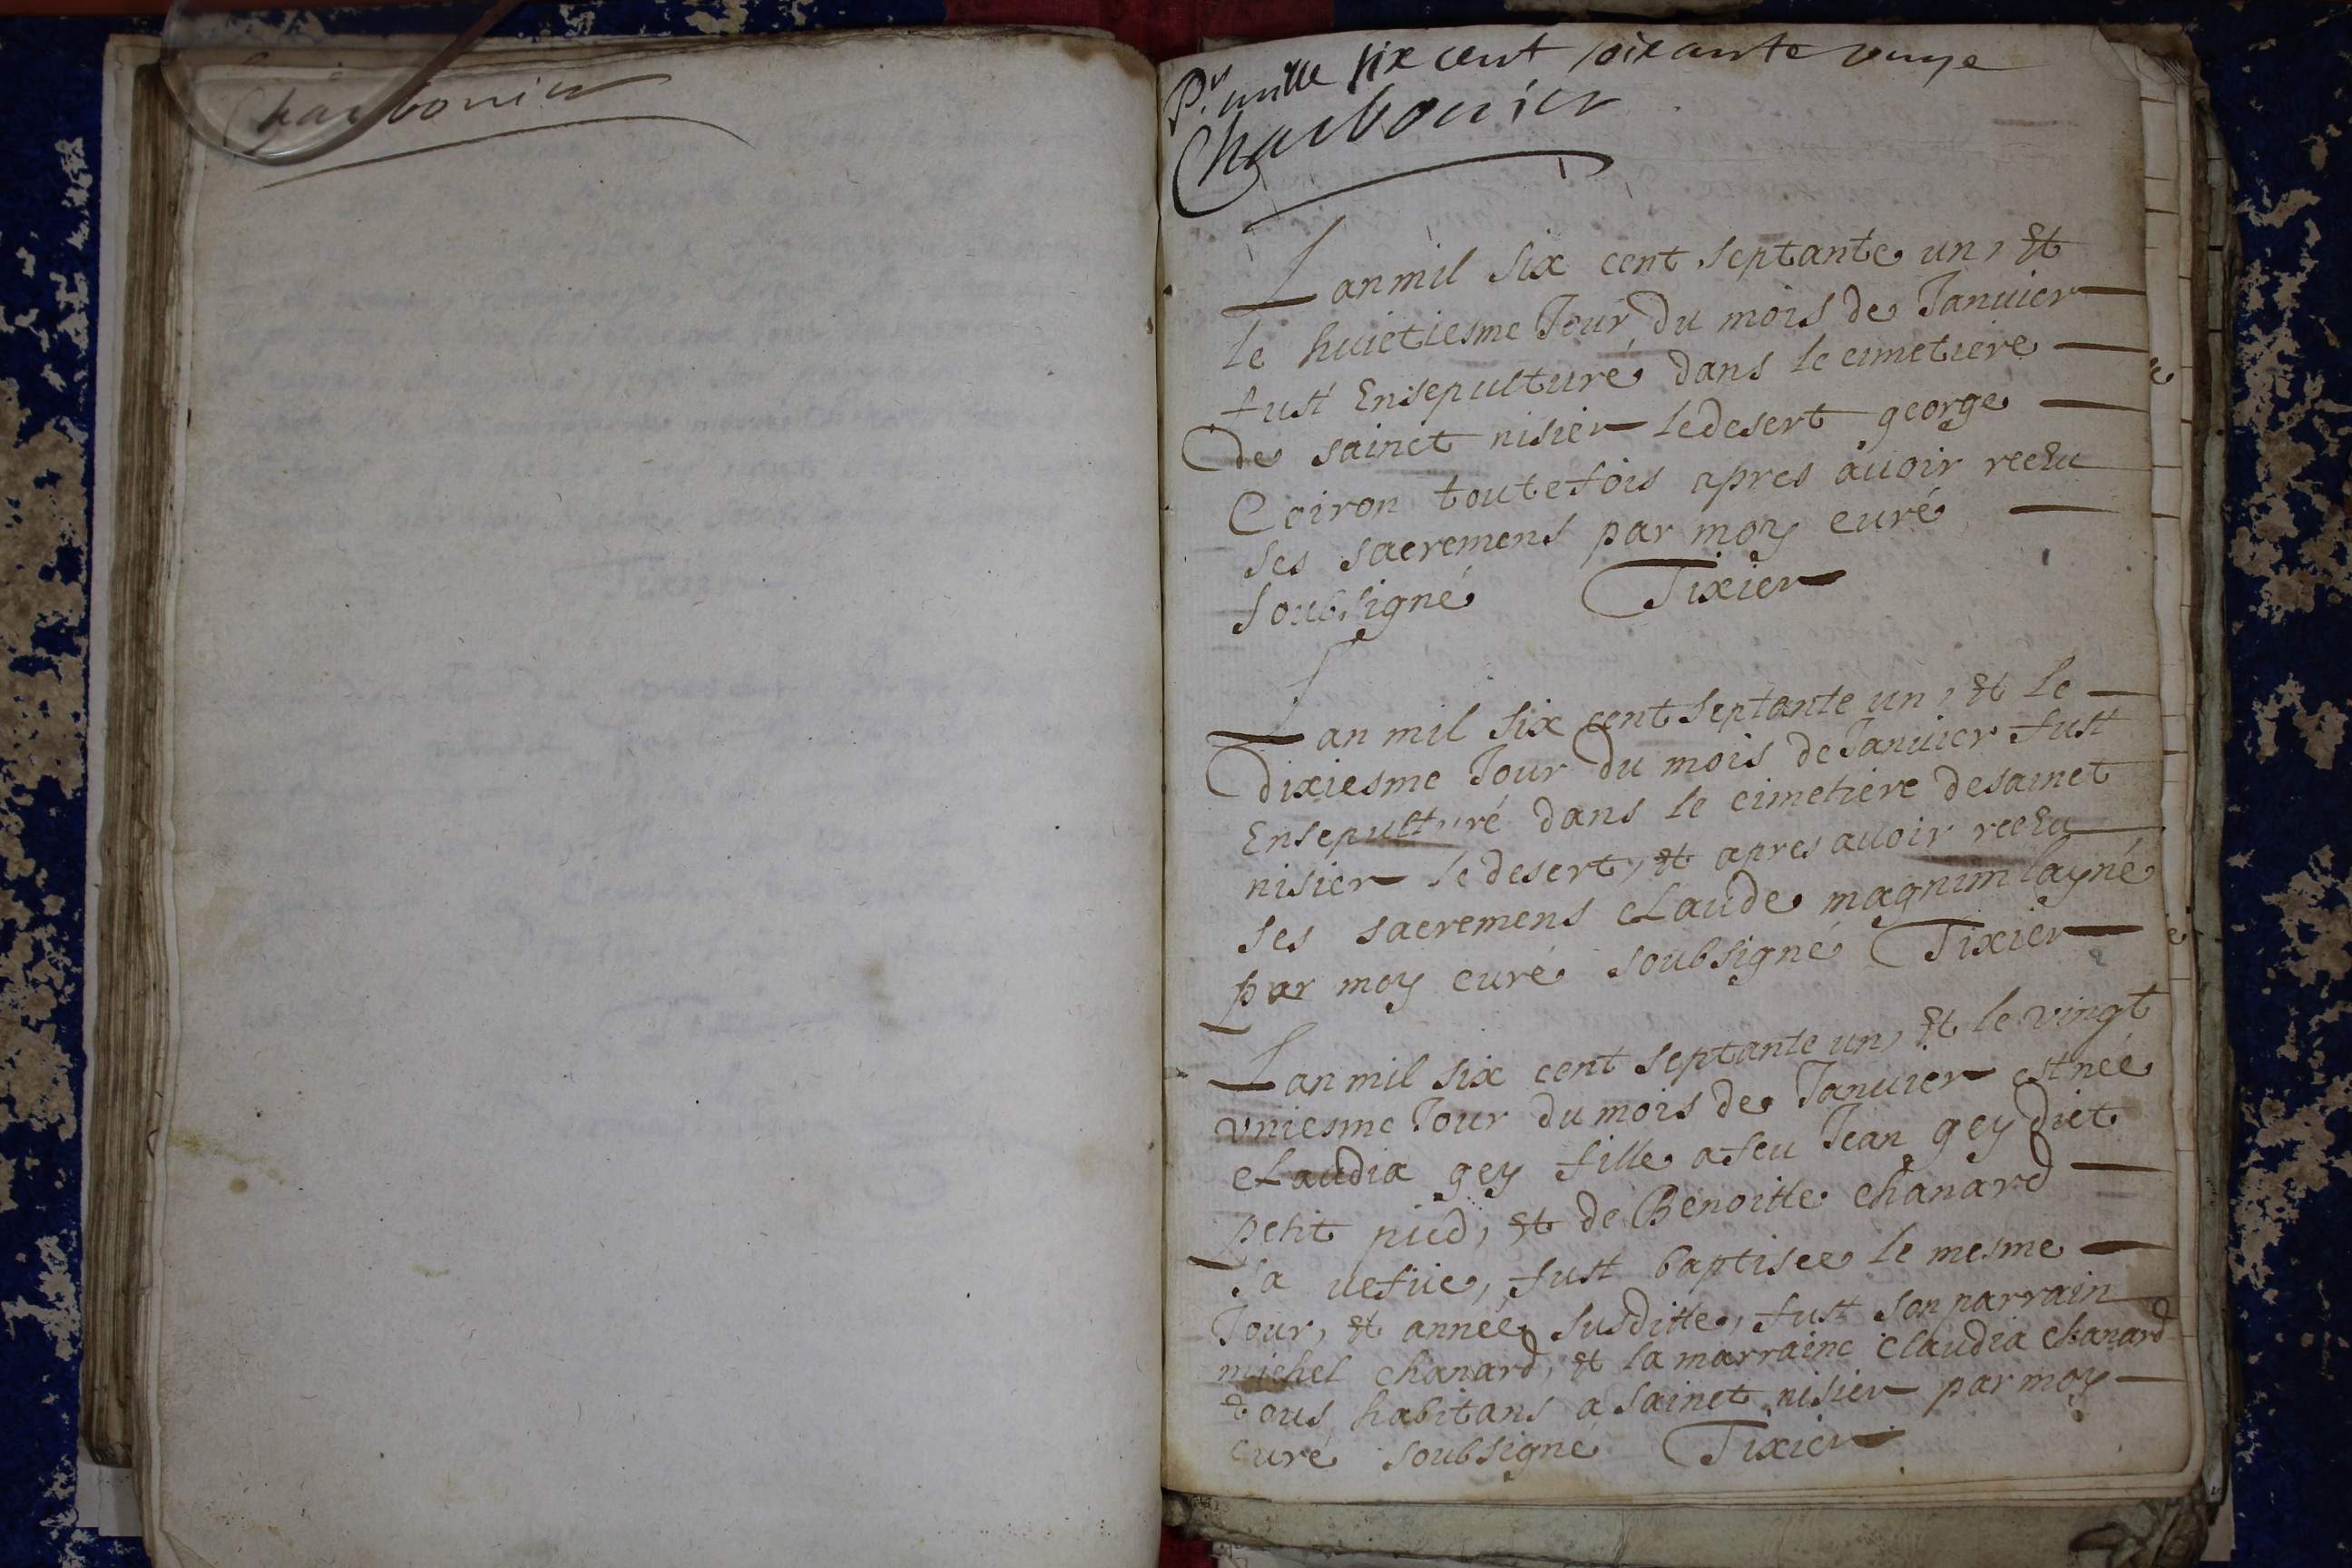 Charbonier
Pr mille six cent soixante unze
Charbonier
Lan mil six cent septante un, et
le huictiesme Jour du mois de Januier
fust Ensepulturé dans le cimetiere
de sainct nisier le desert george
Coiron toutefois apres auoir receu
ses sacremens par moy curé
soubsigné Tixier
Lan mil six cent septante un, et le
dixiesme Jour du mois de Januier fust
Ensepulturé dans le cimetiere de sainct
nisier le desert, et apres auoir receu
ses sacremens claude magnin layné
par moy curé soubsigné Tixier
Lan mil six cent septante un, et le vingt
vniesme Jour du mois de Januier est née
claudia gey fille a feu Jean gey dict
petit pied, et de Benoitte chanard
sa uefue, fust baptisee le mesme
Jour, et année susditte, fust son parrain
michel chanard, et la marraine claudia chanard
tous habitans a sainct nisier par moy
curé soubsigné Tixier